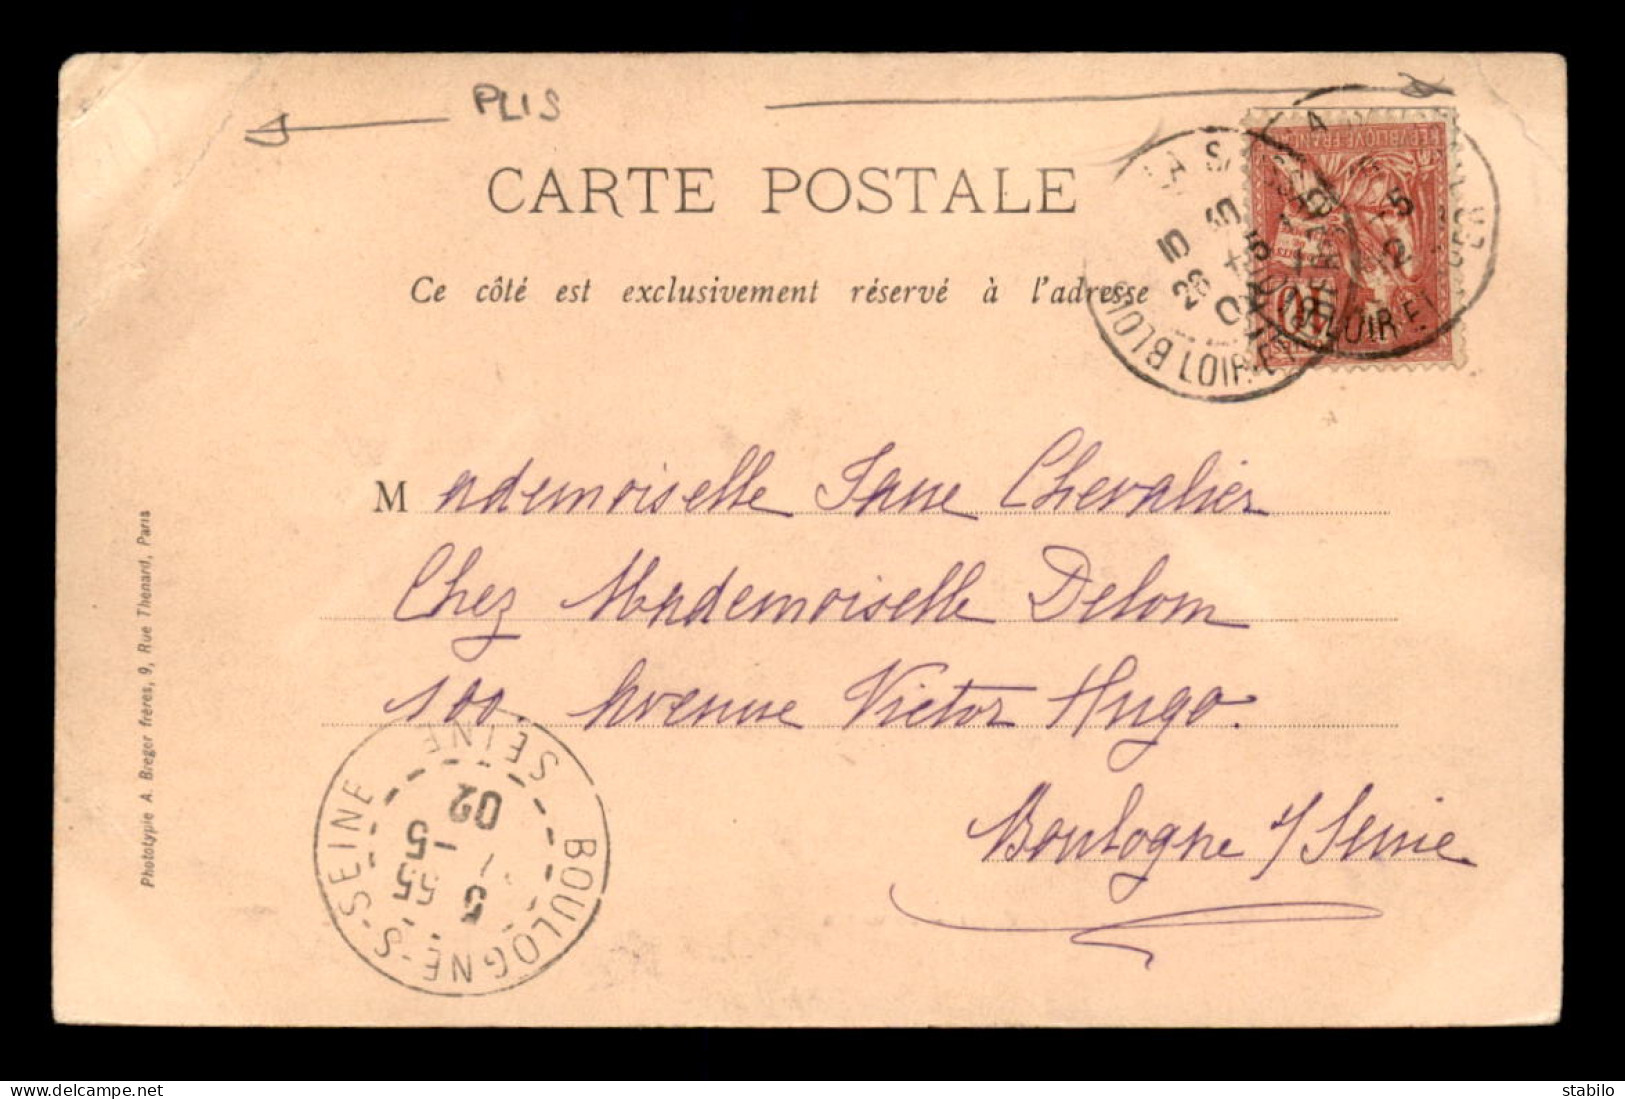 PLIS
CARTE POSTALE
Ce côté est exclusivement réservé à l'adresse
REPUBLIQUE FRAN
10
LOIR-ET
LOIR ET
BLOIS
Mademoiselle Jane Chevalier
Chez Mademoiselle Delom
100. Avenue Victor Hugo.
Boulogne s/ Seine
BOULOGNE-S-SEINE
SEINE
5 55
5
02
Phototypie A. Breger frères, 9, Rue Thenard, Paris
stabilo